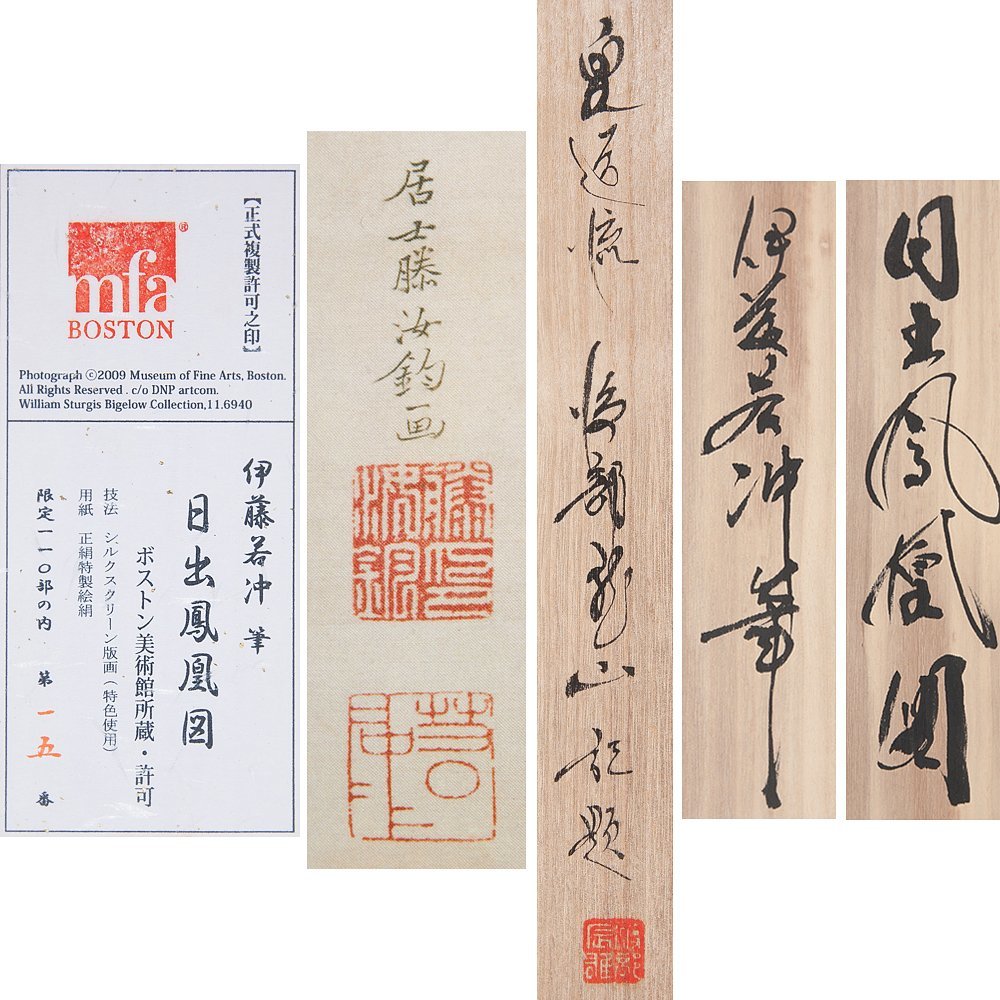 【正式複製許可之印】
mfa®
BOSTON
Photograph ©2009 Museum of Fine Arts, Boston.
All Rights Reserved . c/o DNP artcom.
William Sturgis Bigelow Collection,11.6940
伊藤若冲 筆
日出鳳凰図
ボストン美術館所蔵・許可
技法 シルクスクリーン版画(特色使用)
用紙 正絹特製絵絹
限定一一〇部の内 第 一五 番
居士藤汝鈞画
藤汝鈞印
若冲居士
山記題
伊藤若冲筆
日出鳳凰図